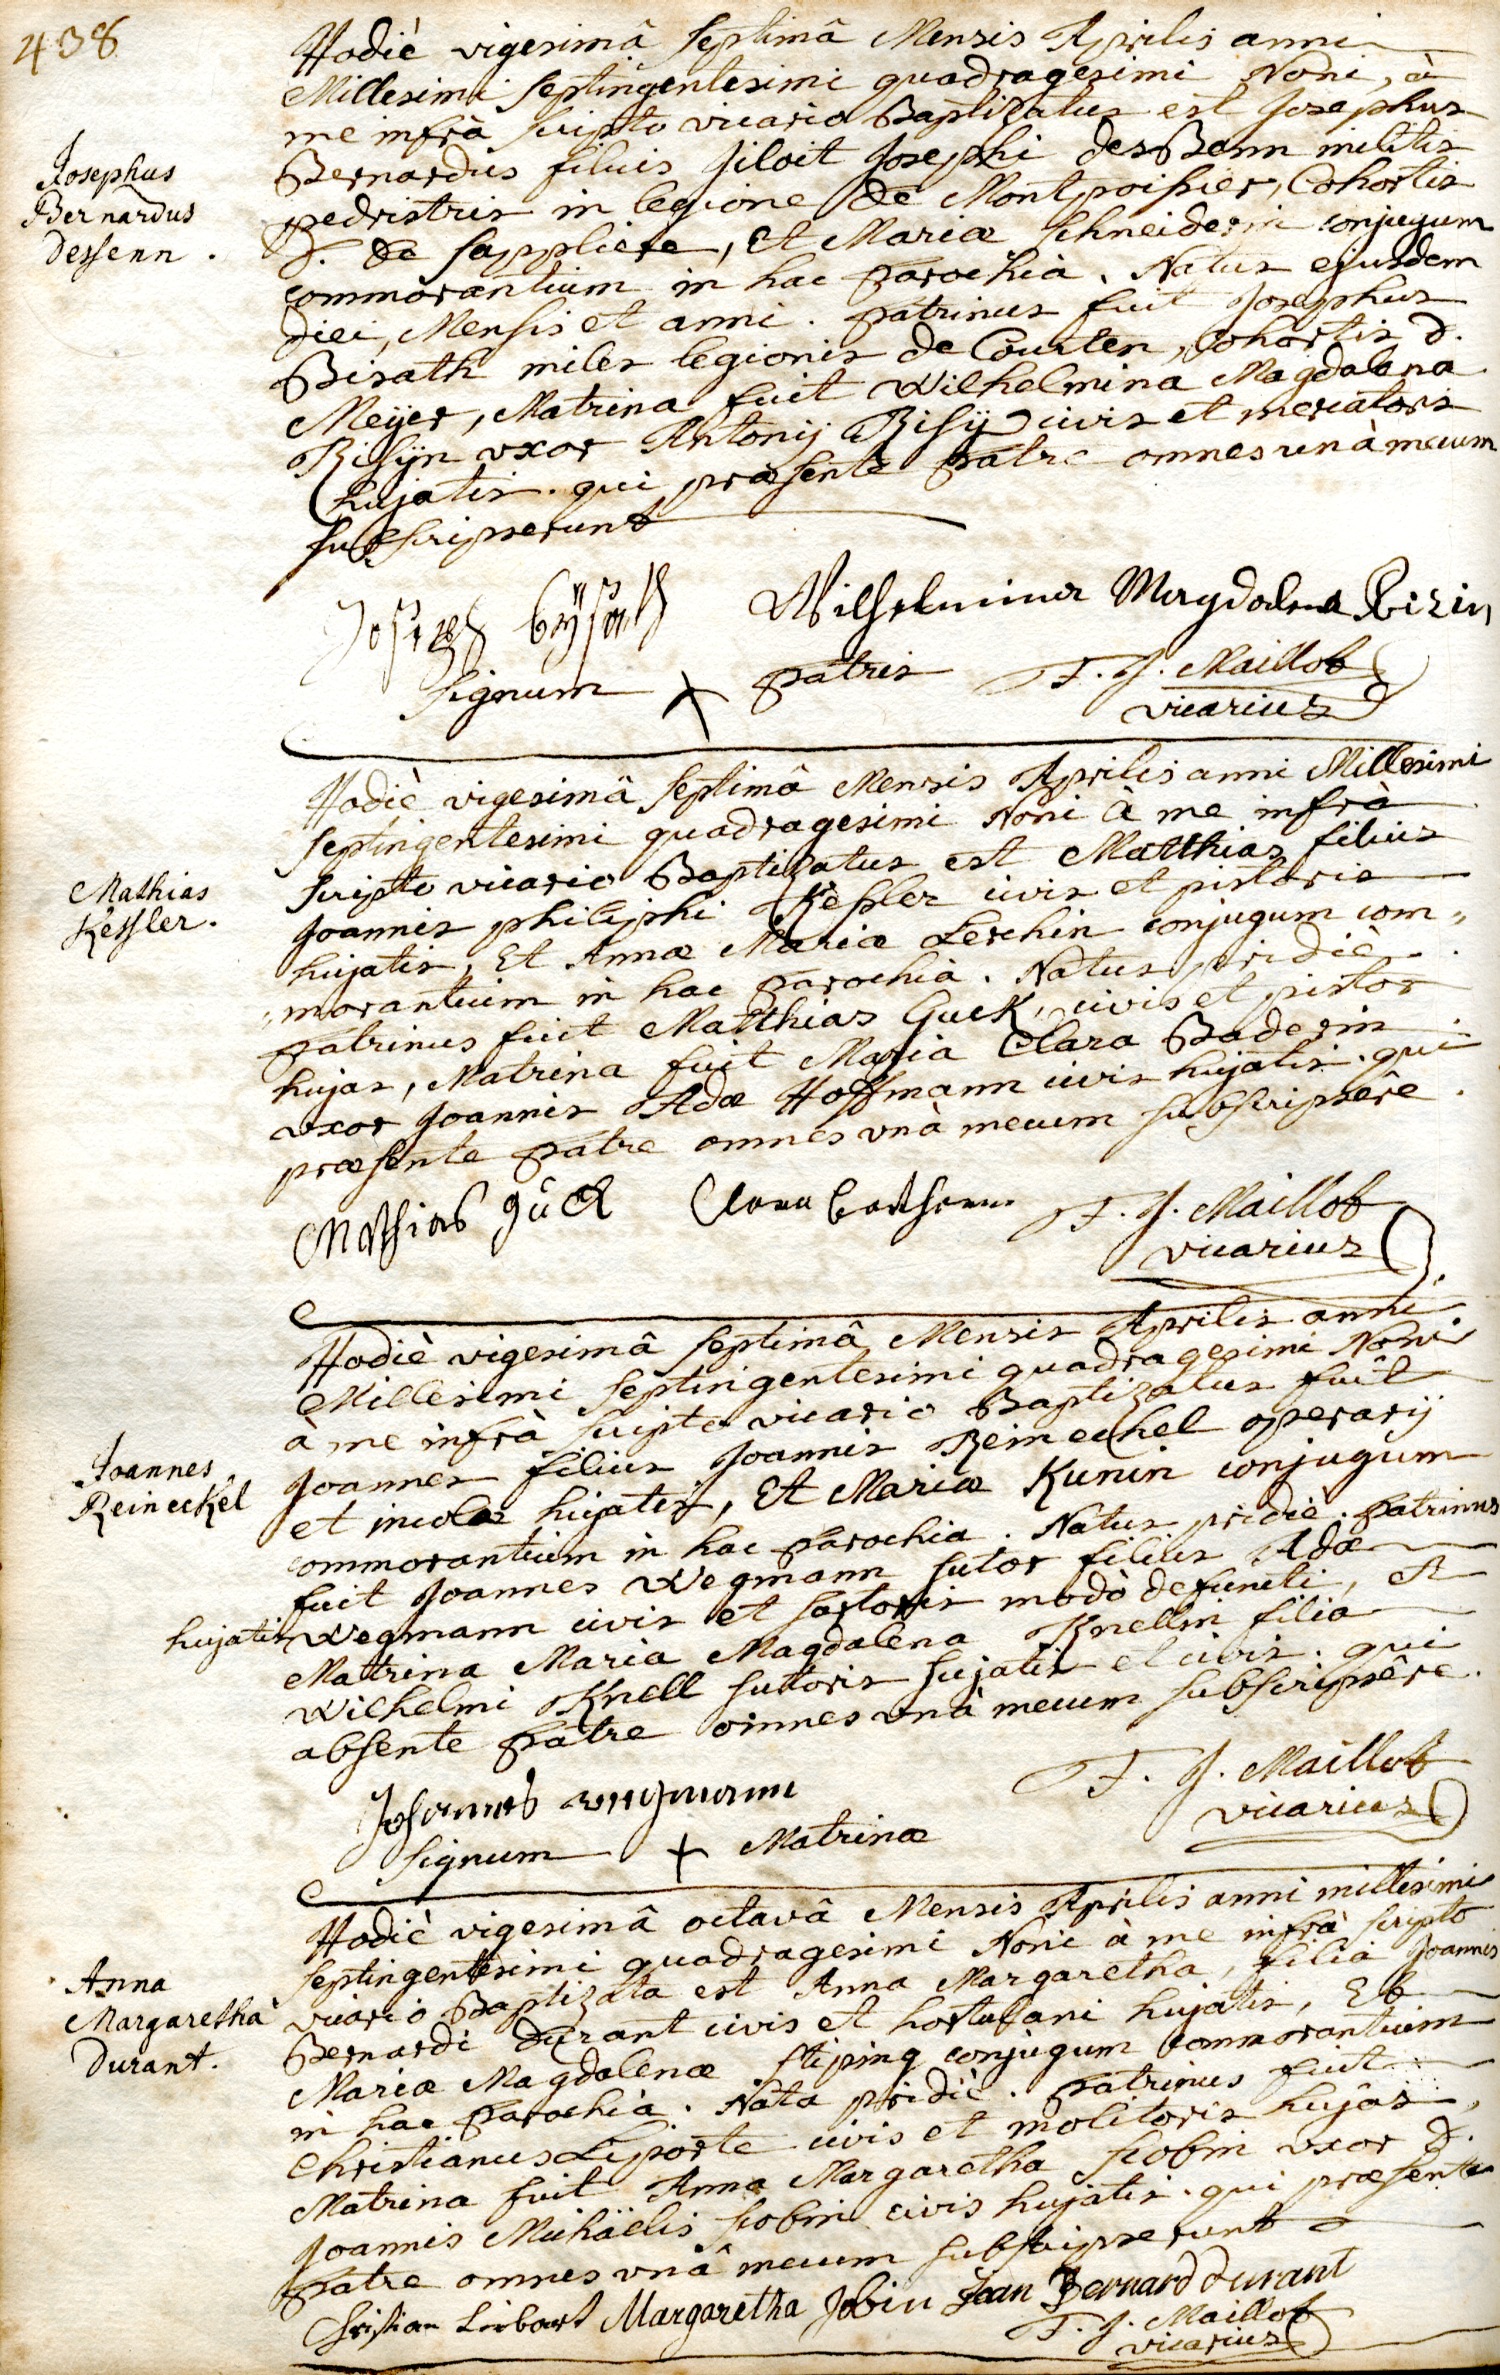 438
Hodiè vigesimâ septimâ Mensis Aprilis anni
Millesimi septingentesimi quadragesimi Noni, à
me infrà scripto vicario Baptizatus est Josephus
Josephus
Bernardus
Dessenn.
Bernardus filius Jiloit Josephi desSenn militis
pedristris in legione de Montpoissier, Cohortis
D. de sappliere, Et Mariæ Schneiderin conjugum
commorantium in hac parochia. Natus ejusdem
diei, Mensis et anni. patrinus fuit Josephus
Bisath miles legionis de Courten, Cohortis D.
Meÿer, Matrina fuit Wilhelmina Magdalena
Risÿn vxor Antonij Risÿ civis et mercatoris
hujatis. qui præsente patre omnes unà mecum
subscripserunt
Joseph Bÿsath Wilhelmina Magdalena Rizin
signum + patris F. J. Maillot
vicarius
Hodiè vigesimâ septimâ Mensis Aprilis anni Millesimi
septingentesimi quadragesimi Noni à me infrà
scripto vicario Baptizatus est Matthias filius
Mathias
Kessler.
Joannis philipphi Kessler civis et pistoris
hujatis, Et Annæ Mariæ Lerchin conjugum com„
„morantium in hac parochia. Natus pridiè.
patrinus fuit Matthias Guck, civis et pistor
hujas, Matrina fuit Maria Clara Baderin
vxor Joannis Adæ Hoffmann civis hujatis. qui
præsente patre omnes vnà mecum subscripsêre.
Mathias Gück Clara F. J. Maillot
vicarius
Hodiè vigesimâ septimâ Mensis Aprilis anni
Millesimi septingentesimi quadragesimi Noni
à me infrà scripto vicario Baptizatus fuit
Joannes
Reineckel
Joannes filius Joannis Reineckel operarij
et incolæ hujatis, Et Mariæ Kunin conjugum
commorantium in hac parochia. Natus pridiè. patrinus
fuit Joannes Wegmann sutor filius Adæ
hujatis Wegmann civis et sartoris modò defuncti, et
Matrina Maria Magdalena Knellin filia
Wilhelmi Knell sutoris hujatis et civis. qui
absente patre omnes vnà mecum subscripsêre.
Johannes Wegmann F. J. Maillot
vicarius
signum + Matrinæ
Hodiè vigesimâ octavâ Mensis Aprilis anni millesimi
septingentesimi quadragesimi Noni à me infrà scripto
Anna
Margaretha
Durant.
vicario Baptizata est Anna Margaretha, filia Joannis
Bernardi Durant civis et hortulani hujatis, Et
Mariæ Magdalenæ Stiping conjugum commorantium
in hac parochià. Nata pridiè. patrinus fuit
Christianus Liporte civis et molitoris hujas,
Matrina fuit Anna Margaretha Jobin vxor D.
Joannis Michäelis Jobin civis hujatis. qui præsente
patre omnes vnâ mecum subscripserunt
Christian Linbart Margaretha Jobin Jean Bernard Durant
F. J. Maillot
vicarius